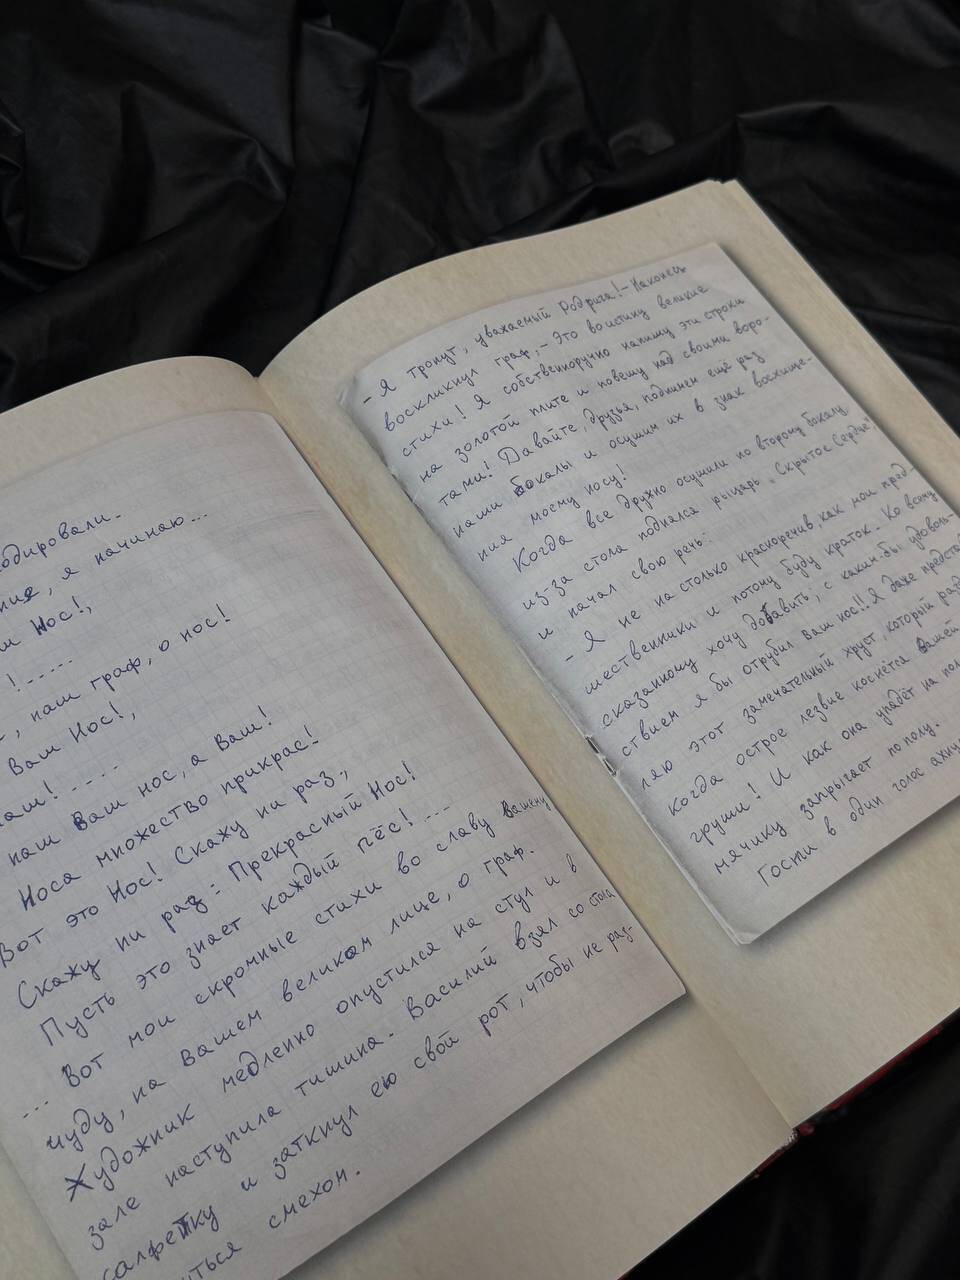 я начинаю...
Нос!,
! ....
, наш граф, о нос!
Ваш Нос!,
наш! ....
наш Ваш нос, а Ваш!
Носа множество прикрас!
Вот это Нос! Скажу ни раз,
Скажу ни раз: Прекрасный Нос!
Пусть это знает каждый пёс! ...
... Вот мои скромные стихи во славу Вашему
чуду, на Вашем великом лице, о граф.
Художник медленно опустился на стул и в
зале наступила тишина. Василий взял со стола
салфетку и заткнул ею свой рот, чтобы не раз-
иться смехом.
- Я тронут, уважаемый Родрига! - Наконец
воскликнул граф, - Это воистину великие
стихи! Я собственноручно напишу эти строки
на золотой плите и повешу над своими воро-
тами! Давайте, друзья, поднимем ещё раз
наши бокалы и осушим их в знак восхище-
ния моему носу!
Когда все дружно осушили по второму бокалу,
из-за стола поднялся рыцарь "Скрытое Сердце",
и начал свою речь:
- Я не на столько красноречив, как мои пред-
шественники и потому буду краток. Ко всему
сказанному хочу добавить, с каким-бы удоволь-
ствием я бы отрубил ваш нос!! Я даже представ
ляю этот замечательный хруст, который разд
когда острое лезвие коснётся Вашей
груши! И как она упадёт на пол
мячику запрыгает по полу.
Гости в один голос ахнул